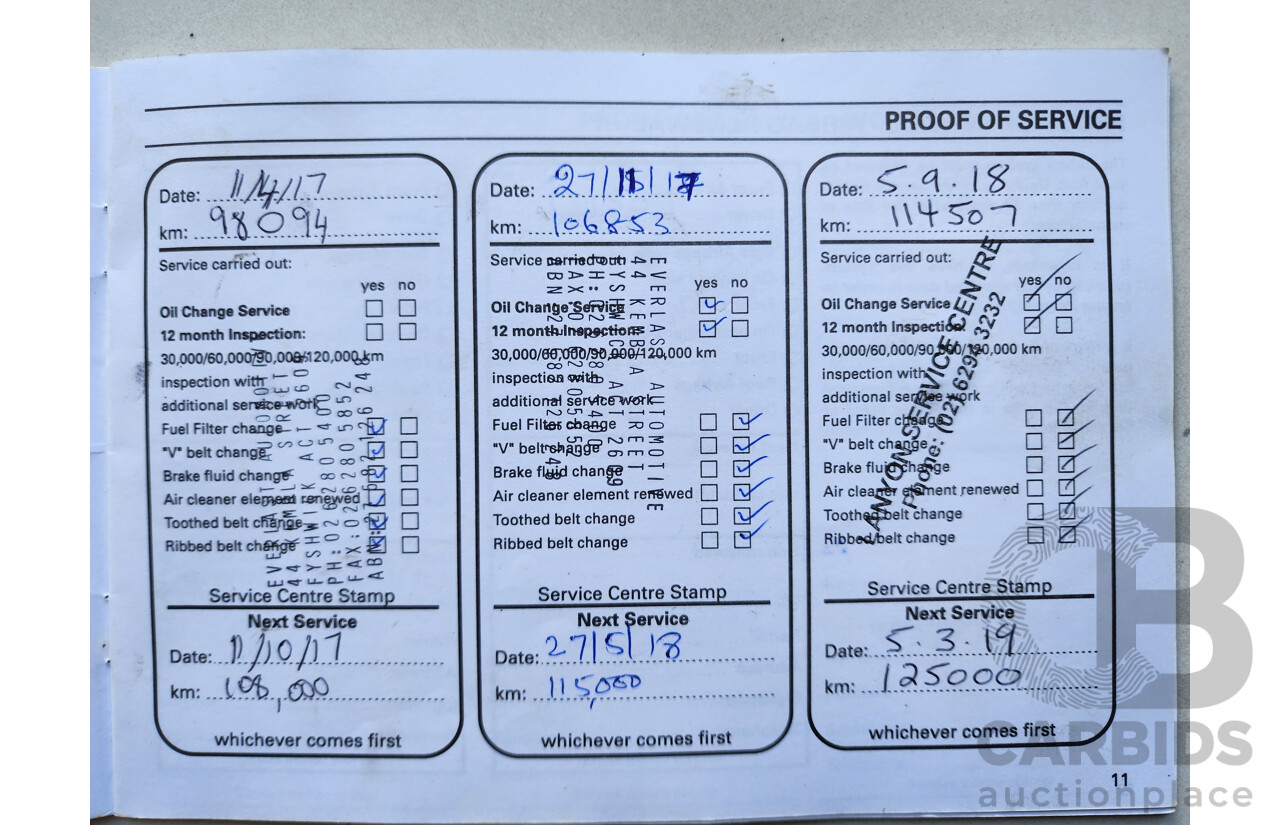 PROOF OF SERVICE
Date: 11/4/17
km: 98094
Service carried out:
yes no
Oil Change Service
12 month Inspection:
30,000/60,000/90,000/120,000 km
inspection with
additional service work
Fuel Filter change
"V" belt change
Brake fluid change
Air cleaner element renewed
Toothed belt change
Ribbed belt change
44 KEMBLA STREET
FYSHWICK ACT
PH:0262805400
FAX:0262805852
Service Centre Stamp
Next Service
Date: 11/10/17
km: 108,000
whichever comes first
Date: 27/11/17
km: 106853
Service carried out:
yes no
Oil Change Service
12 month Inspection:
30,000/60,000/90,000/120,000 km
inspection with
additional service work
Fuel Filter change
"V" belt change
Brake fluid change
Air cleaner element renewed
Toothed belt change
Ribbed belt change
EVERLAST AUTOMOTIVE
44 KEMBLA STREET
FYSHWICK ACT 2609
Service Centre Stamp
Next Service
Date: 27/5/18
km: 115,000
whichever comes first
Date: 5.9.18
km: 114507
Service carried out:
yes no
Oil Change Service
12 month Inspection:
30,000/60,000/90,000/120,000 km
inspection with
additional service work
Fuel Filter change
"V" belt change
Brake fluid change
Air cleaner element renewed
Toothed belt change
Ribbed belt change
LANYON SERVICE CENTRE
Phone: (02) 6294 3232
Service Centre Stamp
Next Service
Date: 5.3.19
km: 125000
whichever comes first
11
CB
CARBIDS
auctionplace